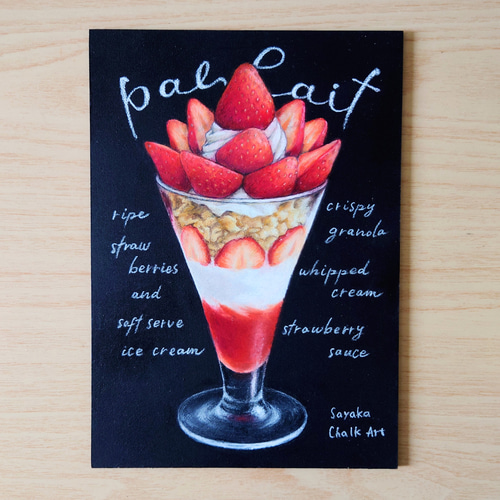 parfait
ripe
straw
berries
and
soft serve
ice cream
crispy
granola
whipped
cream
strawberry
sauce
Sayaka
Chalk Art